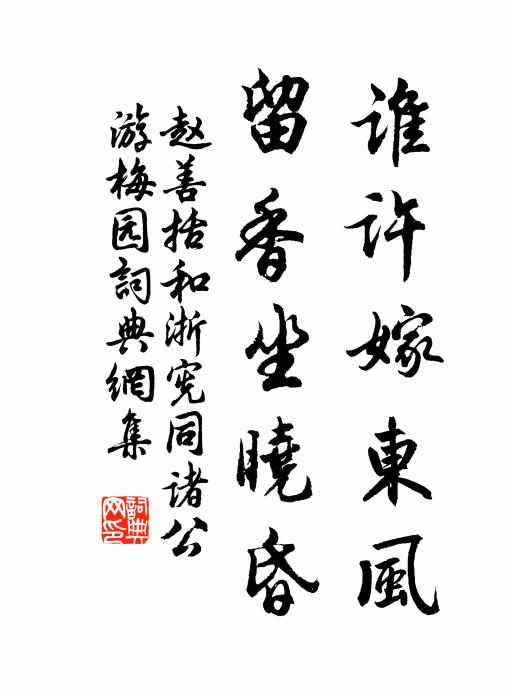 誰許嫁東風
留香坐曉昏
赵善括和浙宪同诸公
游梅园詞典網集
詞典網印